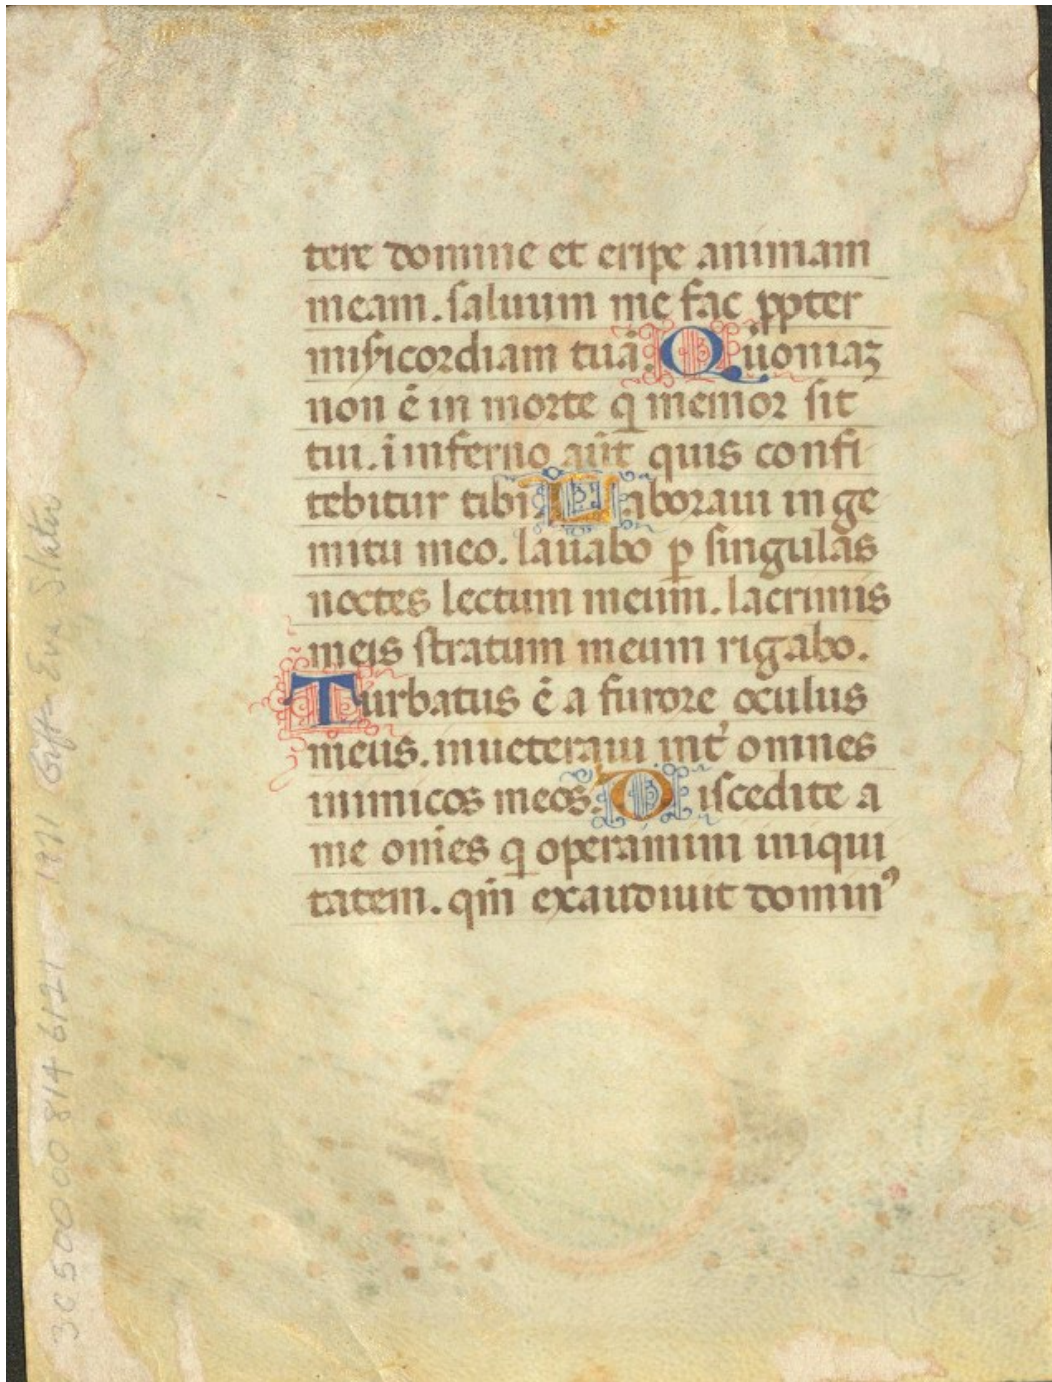 tere domine et eripe animam
meam. saluum me fac ꝓpter
misericordiam tuā. Quoniaꝫ
non ē in morte q̄ memor sit
tui. ī inferno aūt quis confi
tebitur tibi. Laboraui in ge
mitu meo. lauabo ꝑ singulas
noctes lectum meum. lacrimis
meis stratum meum rigabo.
Turbatus ē a furore oculus
meus. inueteraui int̄ omnes
inimicos meos. Discedite a
me om̄es q̄ operamini iniqui
tatem. qm̄ exaudiuit domin᾽
3050000 814 6121 1971 Gift - Eva Slater